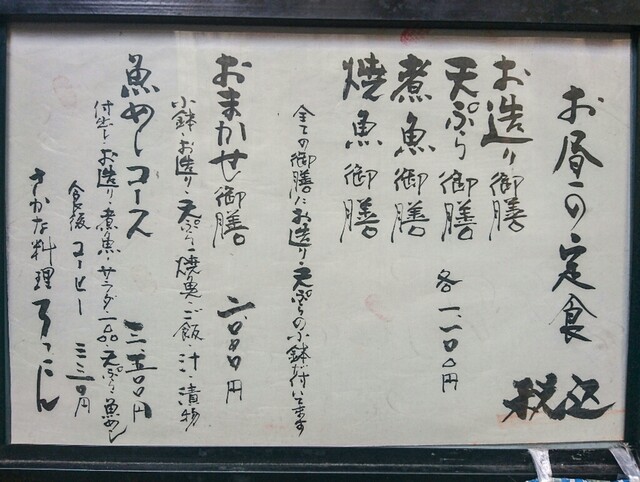 お昼の定食 税込
お造り御膳
天ぷら御膳 各一、一〇〇円
煮魚御膳
焼魚御膳
全ての御膳にお造り・天ぷらの小鉢が付いてます
おまかせ御膳 二、〇〇〇円
小鉢・お造り・天ぷら・焼魚・ご飯・汁・漬物
魚めしコース 三、五〇〇円
付出し・お造り・煮魚・サラダ・一品・天ぷら・魚めし
食後コーヒー 三三〇円
さかな料理